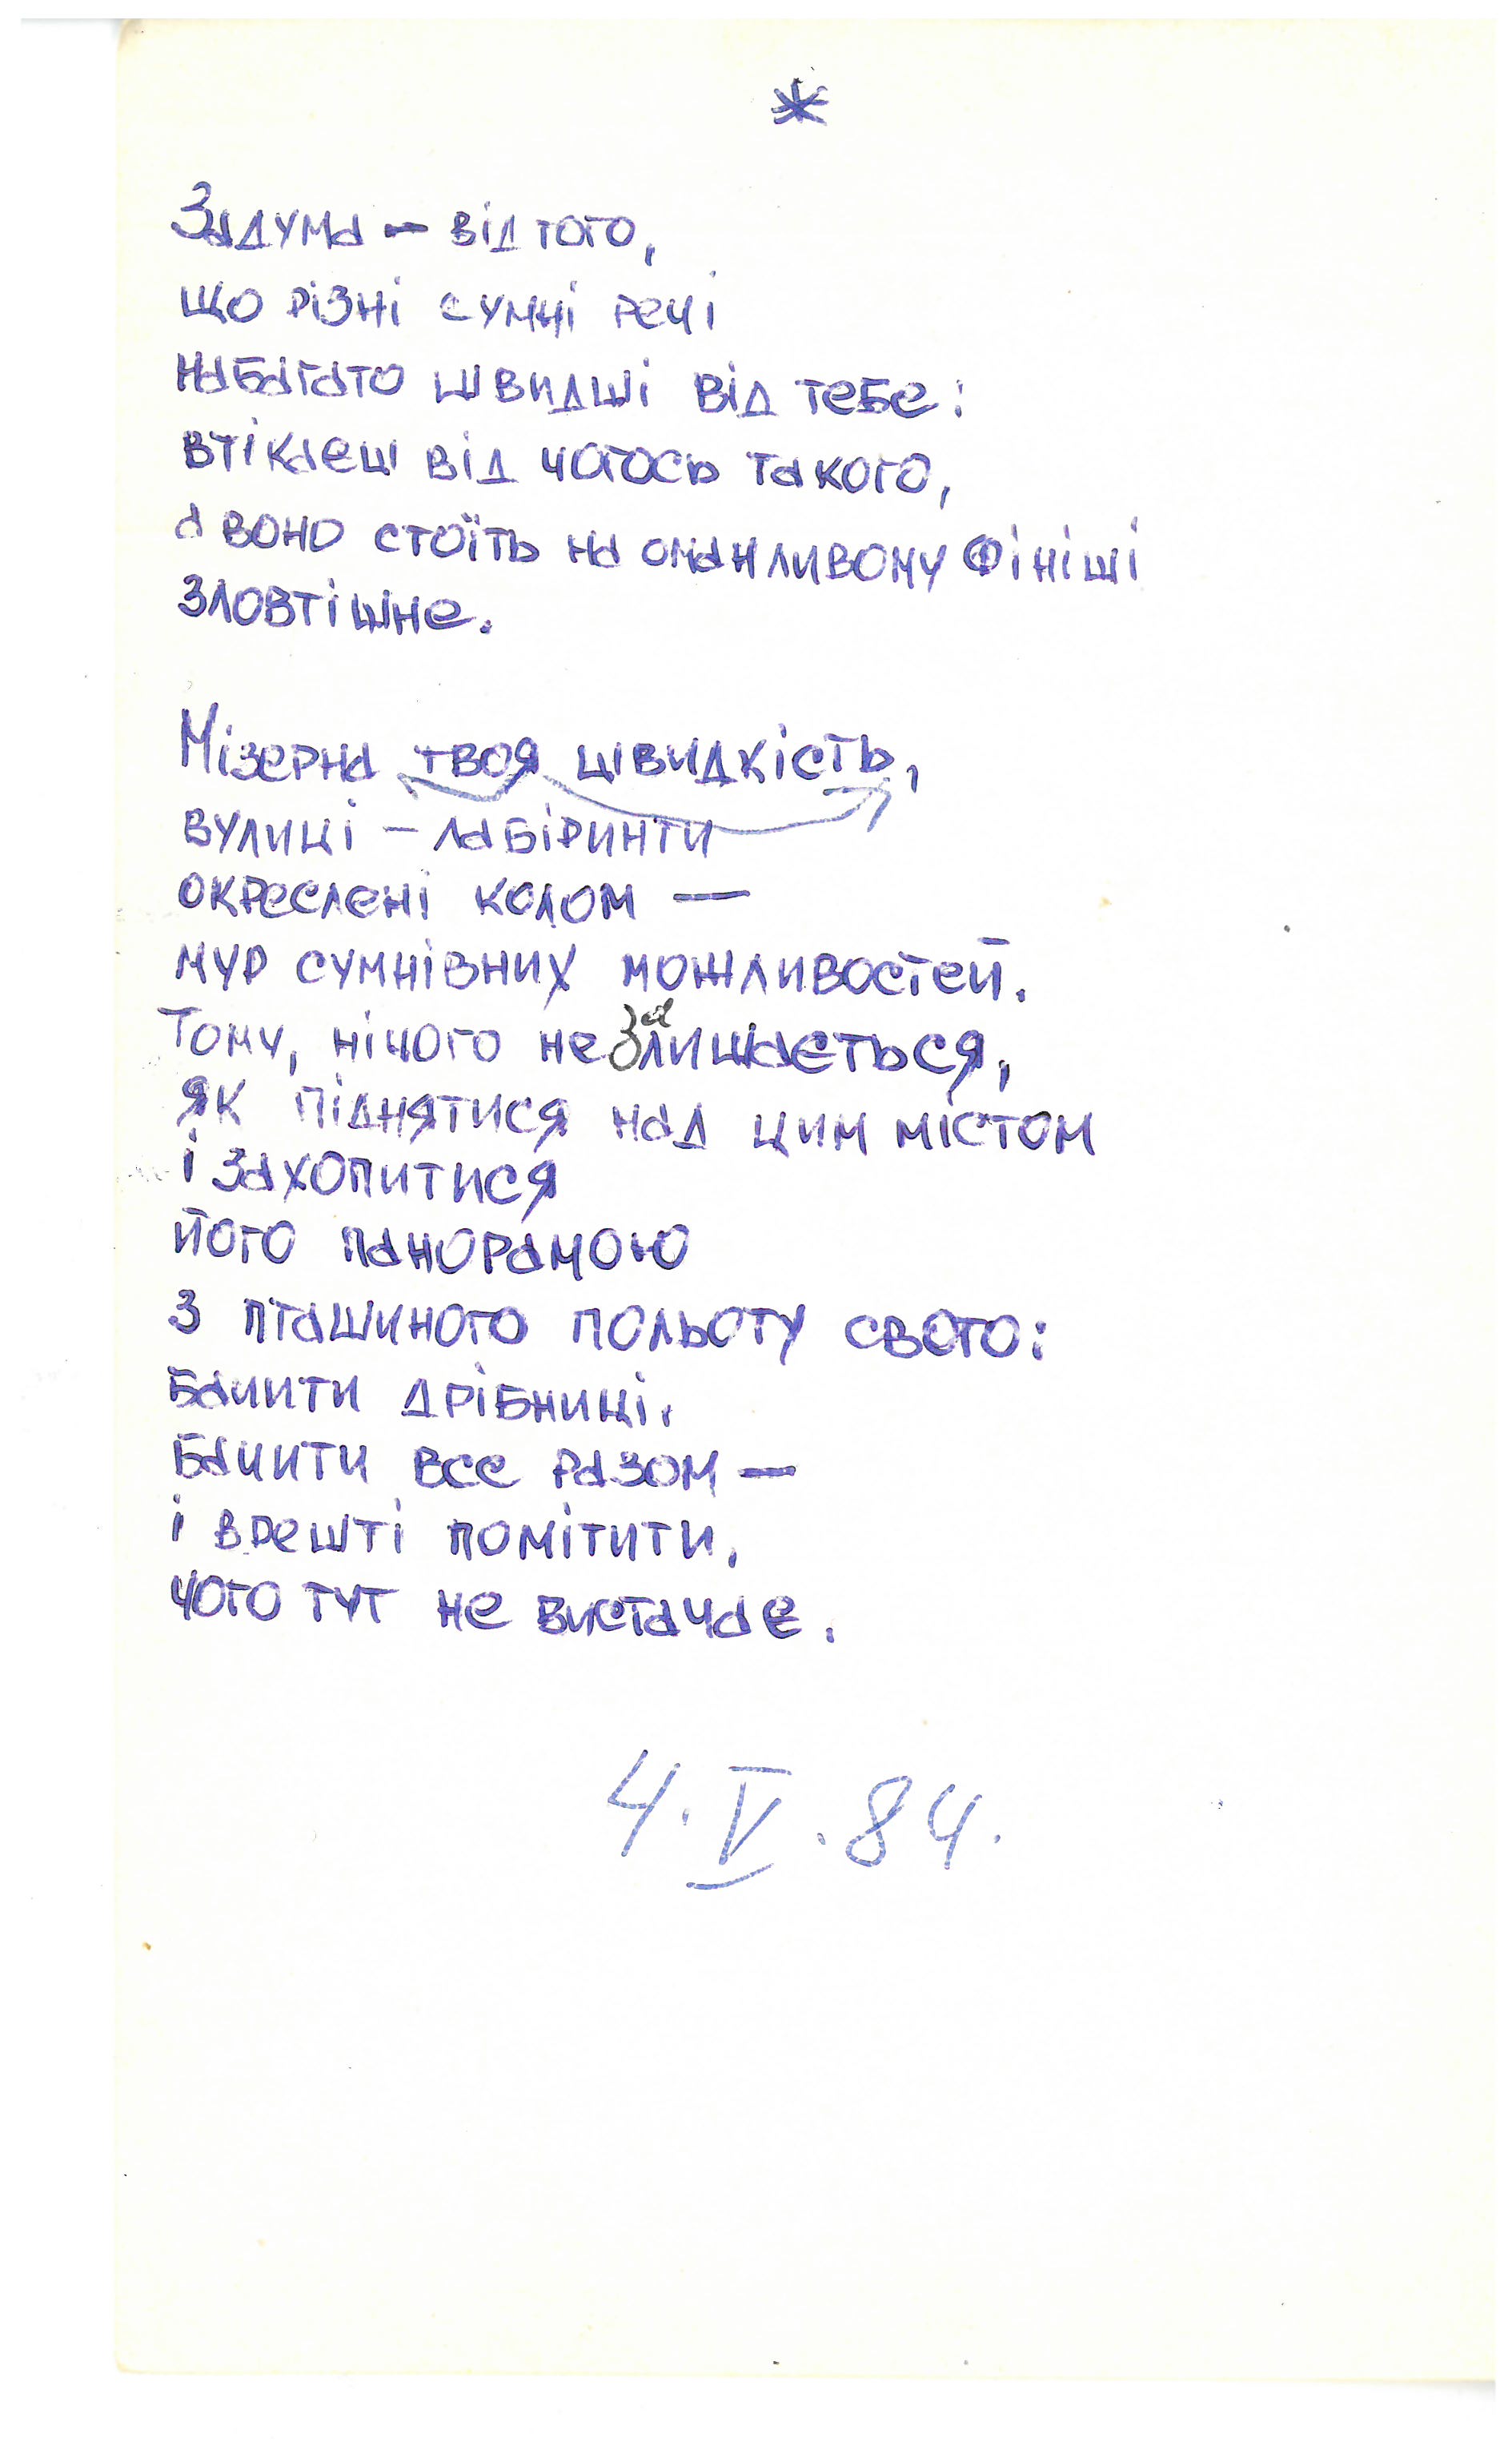 *
Задума – від того,
що різні сумні речі
набагато швидші від тебе:
втікаєш від чогось такого,
а воно стоїть на оманливому фініші
зловтішне.
Мізерна твоя швидкість,
вулиці – лабіринти
окреслені колом —
мур сумнівних можливостей.
Тому, нічого не залишається,
як піднятися над цим містом
і захопитися
його панорамою
з пташиного польоту свого:
бачити дрібниці,
бачити все разом —
і врешті помітити,
чого тут не вистачає.
4.V.84.